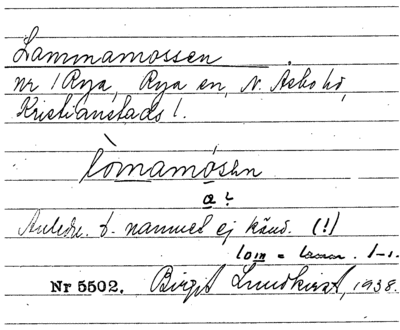 Lammamossen
nr 1 Rya, Rya sn, N. Åsbo hd,
Kristianstads l.
lòmamósen
a ?
Anledn. t. namnet ej känd. (!)
lom = lamm.
Nr 5502. Birgit Lundkvist, 1938.